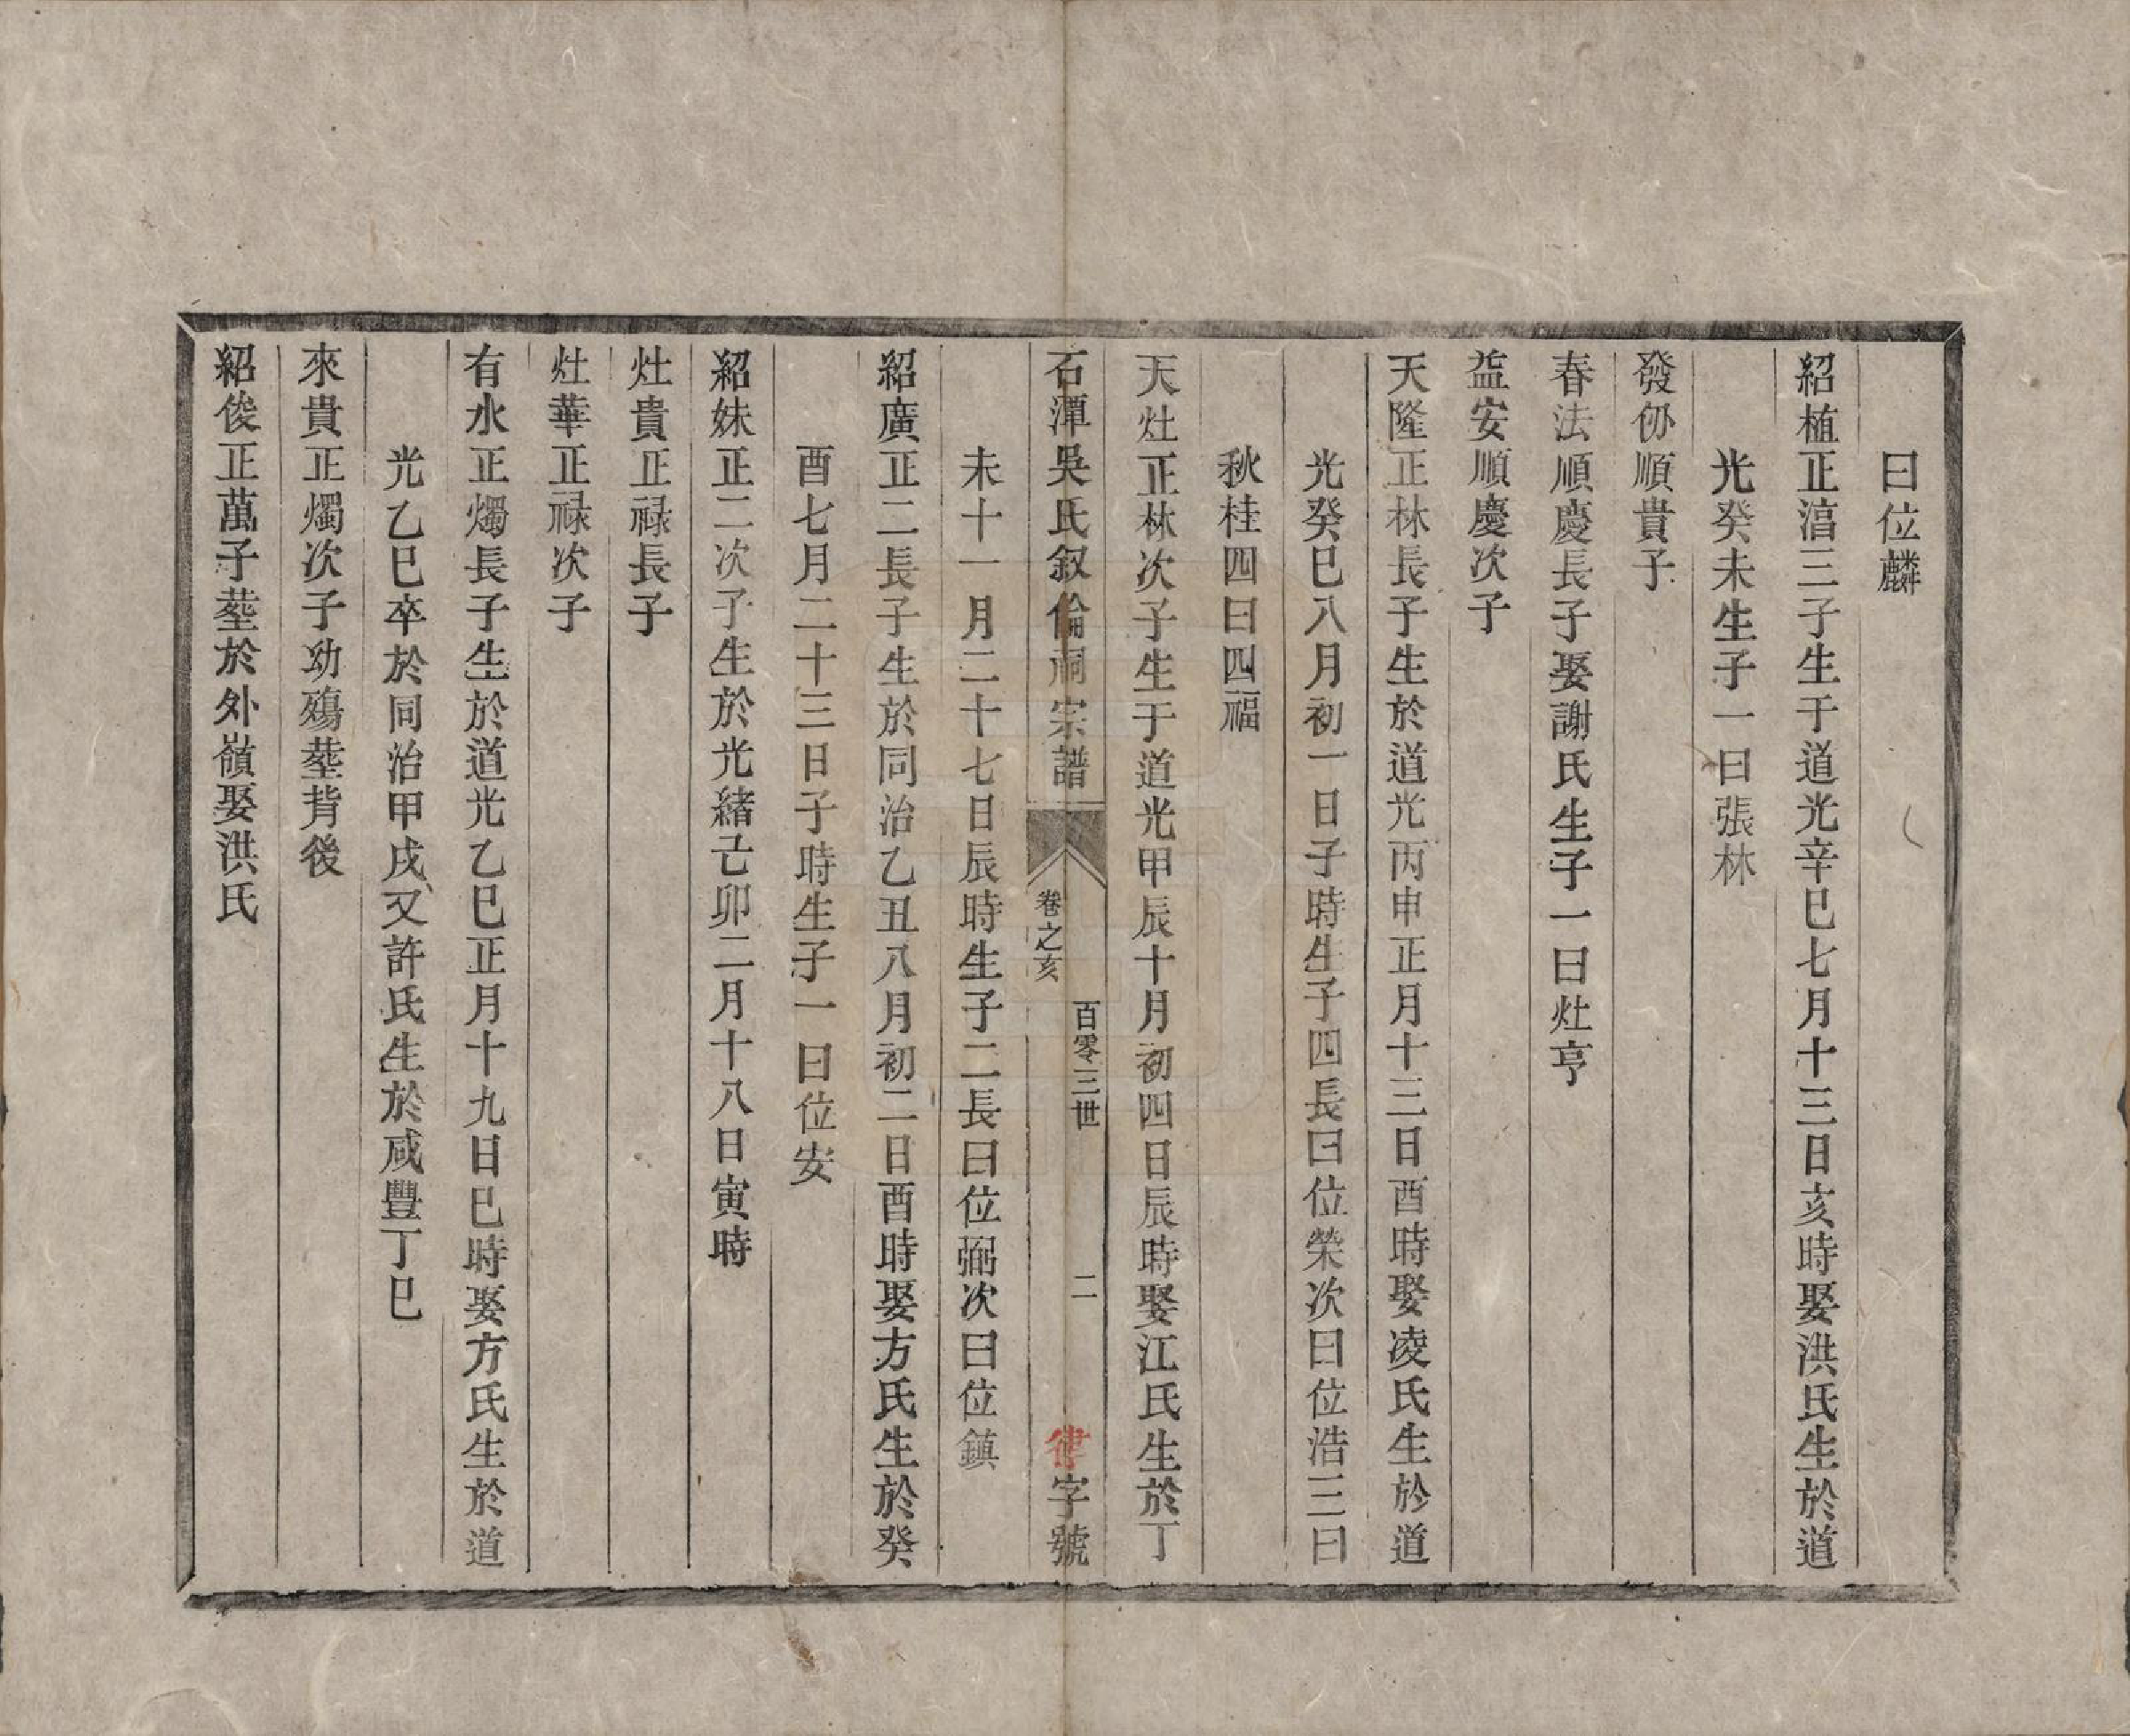 曰位麟
紹植正濇三子生于道光辛巳七月十三日亥時娶洪氏生於道
光癸未生子一曰張林
發仂順貴子
春法順慶長子娶謝氏生子一曰灶亨
益安順慶次子
天隆正林長子生於道光丙申正月十三日酉時娶凌氏生於道
光癸巳八月初一日子時生子四長曰位榮次曰位浩三曰
秋桂四曰四福
天灶正林次子生于道光甲辰十月初四日辰時娶江氏生於丁
石潭吳氏叙倫祠宗譜 卷之亥 百零三世 二 律字號
未十一月二十七日辰時生子二長曰位弼次曰位鎮
紹廣正二長子生於同治乙丑八月初二日酉時娶方氏生於癸
酉七月二十三日子時生子一曰位安
紹妹正二次子生於光緒己卯二月十八日寅時
灶貴正禄長子
灶華正禄次子
有水正燭長子生於道光乙巳正月十九日巳時娶方氏生於道
光乙巳卒於同治甲戌又許氏生於咸豐丁巳
來貴正燭次子幼殤塟背後
紹俊正萬子塟於外嶺娶洪氏